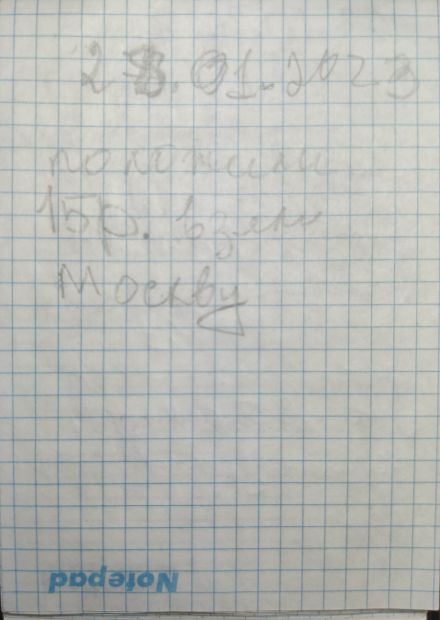 28.01.2023
положили
15р. взяли
Москву
Notepad